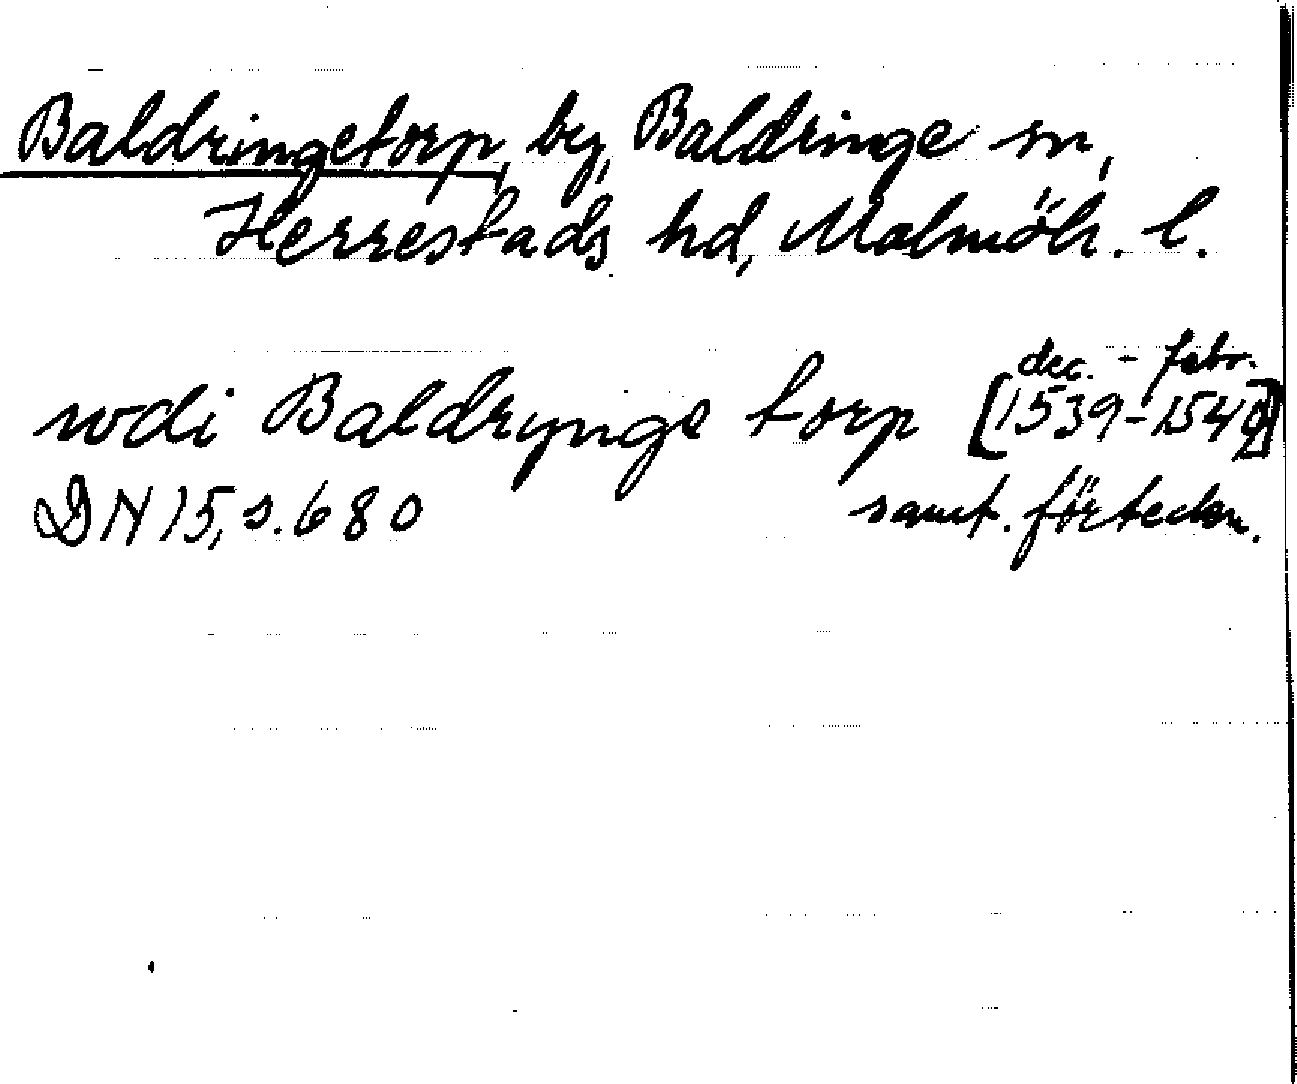 Baldringetorp, by, Baldringe sn,
Herrestads hd, Malmöh. l.
dec. - febr.
wdi Baldrynge torp [1539-1540]
DN 15, s. 680 samt. förteckn.